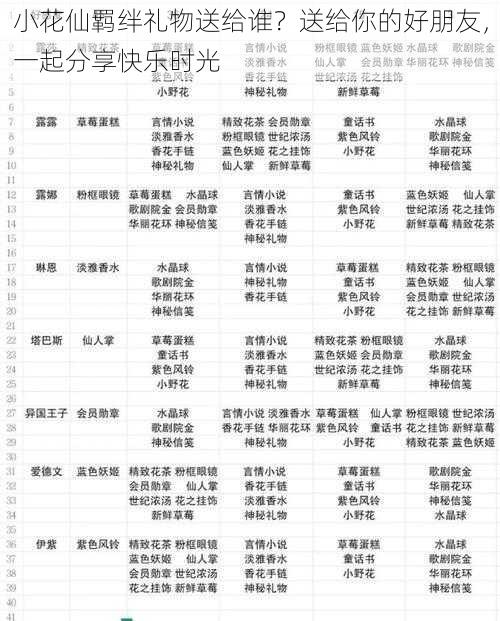 小花仙羁绊礼物送给谁?送给你的好朋友,
一起分享快乐时光
5 小野花 神秘礼物 新鲜草莓
6
7 露露 草莓蛋糕 言情小说 精致花茶 会员勋章 童话书 水晶球
8 淡雅香水 粉框眼镜 世纪浓汤 紫色风铃 歌剧院金
9 香花手链 蓝色妖姬 花之挂饰 小野花 华丽花环
10 神秘礼物 仙人掌 新鲜草莓 神秘信笺
11
12 露娜 粉框眼镜 草莓蛋糕 水晶球 言情小说 童话书 蓝色妖姬 仙人掌
13 歌剧院金 会员勋章 淡雅香水 紫色风铃 世纪浓汤 花之挂饰
14 华丽花环 神秘信笺 香花手链 小野花 新鲜草莓 精致花茶
15 神秘礼物
16
17 琳恩 淡雅香水 水晶球 言情小说 草莓蛋糕 精致花茶 粉框眼镜
18 歌剧院金 神秘礼物 童话书 蓝色妖姬 仙人掌
19 华丽花环 香花手链 紫色风铃 会员勋章 世纪浓汤
20 神秘信笺 小野花 花之挂饰 新鲜草莓
21
22 塔巴斯 仙人掌 草莓蛋糕 言情小说 精致花茶 粉框眼镜 水晶球
23 童话书 淡雅香水 蓝色妖姬 会员勋章 歌剧院金
24 紫色风铃 香花手链 世纪浓汤 花之挂饰 华丽花环
25 小野花 神秘礼物 新鲜草莓 神秘信笺
26
27 异国王子 会员勋章 水晶球 言情小说 淡雅香水 草莓蛋糕 仙人掌 粉框眼镜 世纪浓汤
28 歌剧院金 香花手链 华丽花环 紫色风铃 童话书 花之挂饰 新鲜草莓
29 神秘信笺 神秘礼物 小野花 精致花茶 蓝色妖姬
30
31 爱德文 蓝色妖姬 精致花茶 粉框眼镜 言情小说 草莓蛋糕 歌剧院金
32 会员勋章 仙人掌 香花手链 童话书 华丽花环
33 世纪浓汤 花之挂饰 淡雅香水 紫色风铃 神秘信笺
34 新鲜草莓 神秘礼物 小野花 水晶球
35
36 伊紫 紫色风铃 精致花茶 粉框眼镜 言情小说 草莓蛋糕 水晶球
37 蓝色妖姬 仙人掌 淡雅香水 童话书 歌剧院金
38 会员勋章 世纪浓汤 香花手链 小野花 华丽花环
39 花之挂饰 新鲜草莓 神秘礼物 神秘信笺
40
41